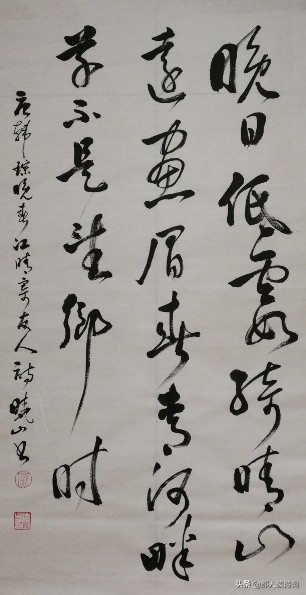 晚日低霞綺晴山
遠畫眉春青河畔
草不是望鄉时
唐韓琮晚春江晴寄友人詩 曉山书
头条